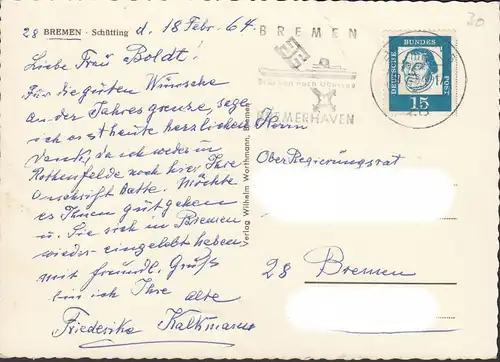 28 BREMEN - Schütting d. 18 Febr. 64.
Liebe Frau Boldt!
Für die guten Wünsche
an der Jahresgrenze, sage
ich erst heute herzlichen
Dank, da ich weder in
Rothenfelde noch hier, Ihre
Anschrift hatte. Möchte
es Ihnen gut gehen
u. Sie sich in Bremen
wieder eingelebt haben,
mit freundl. Gruß
bin ich Ihre alte
Friederike Kalkmann
Verlag Wilhelm Worthmann, Bremen
BREMEN
Brücken nach Übersee
BREMERHAVEN
DEUTSCHE BUNDESPOST
15
30
Herrn
Ober Regierungsrat
28 Bremen